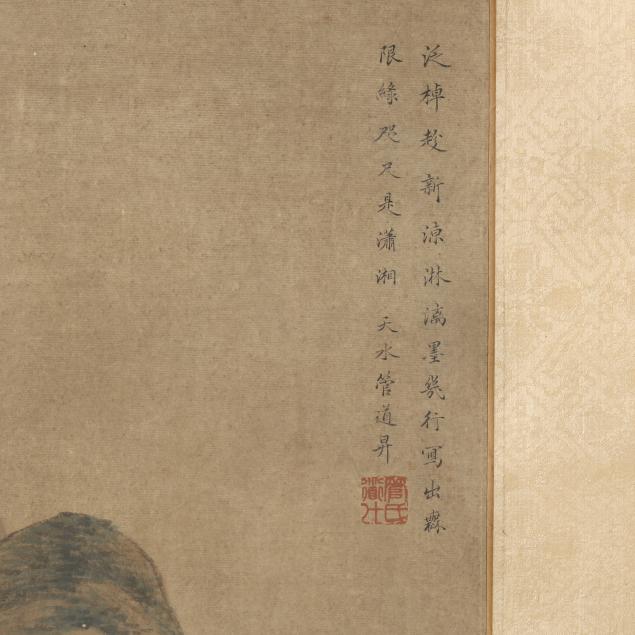 泛棹趁新涼淋漓墨幾行寫出無
限綠咫尺是瀟湘 天水管道昇
管氏